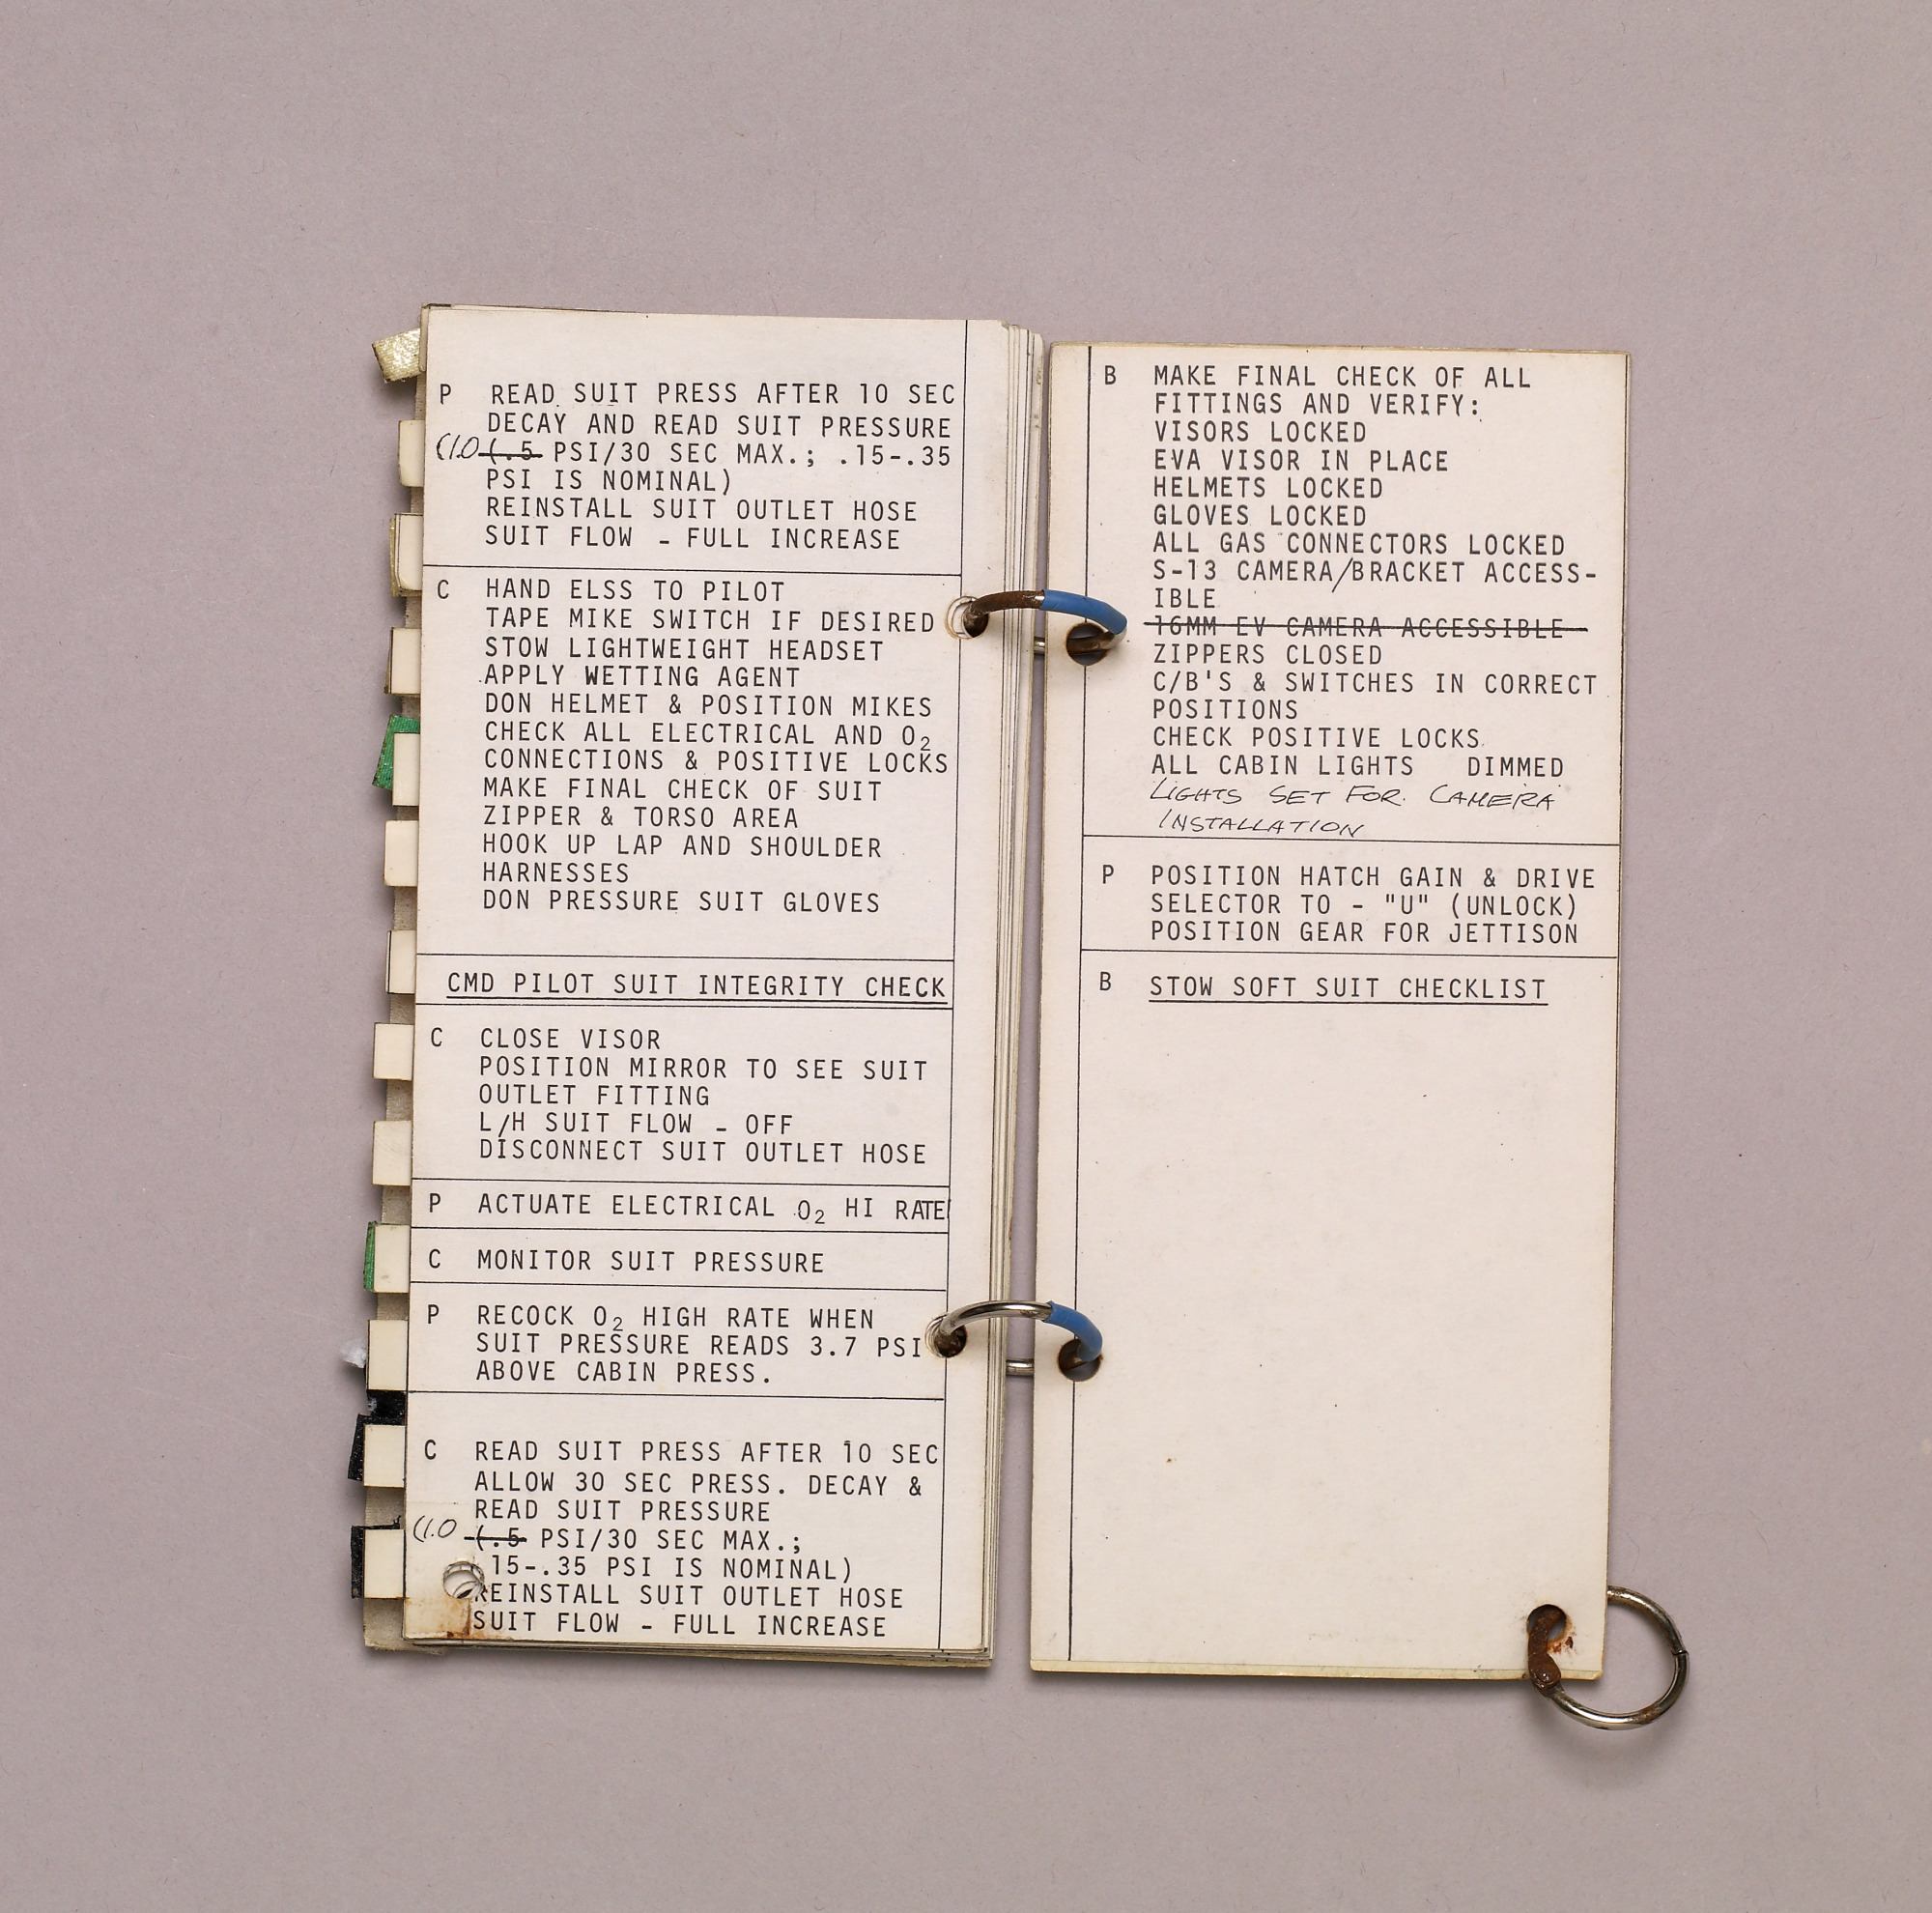 P READ SUIT PRESS AFTER 10 SEC
DECAY AND READ SUIT PRESSURE
(1.0 (.5 PSI/30 SEC MAX.; .15-.35
PSI IS NOMINAL)
REINSTALL SUIT OUTLET HOSE
SUIT FLOW - FULL INCREASE
C HAND ELSS TO PILOT
TAPE MIKE SWITCH IF DESIRED
STOW LIGHTWEIGHT HEADSET
APPLY WETTING AGENT
DON HELMET & POSITION MIKES
CHECK ALL ELECTRICAL AND O2
CONNECTIONS & POSITIVE LOCKS
MAKE FINAL CHECK OF SUIT
ZIPPER & TORSO AREA
HOOK UP LAP AND SHOULDER
HARNESSES
DON PRESSURE SUIT GLOVES
CMD PILOT SUIT INTEGRITY CHECK
C CLOSE VISOR
POSITION MIRROR TO SEE SUIT
OUTLET FITTING
L/H SUIT FLOW - OFF
DISCONNECT SUIT OUTLET HOSE
P ACTUATE ELECTRICAL O2 HI RATE
C MONITOR SUIT PRESSURE
P RECOCK O2 HIGH RATE WHEN
SUIT PRESSURE READS 3.7 PSI
ABOVE CABIN PRESS.
C READ SUIT PRESS AFTER 10 SEC
ALLOW 30 SEC PRESS. DECAY &
READ SUIT PRESSURE
(1.0 (.5 PSI/30 SEC MAX.;
15-.35 PSI IS NOMINAL)
REINSTALL SUIT OUTLET HOSE
SUIT FLOW - FULL INCREASE
B MAKE FINAL CHECK OF ALL
FITTINGS AND VERIFY:
VISORS LOCKED
EVA VISOR IN PLACE
HELMETS LOCKED
GLOVES LOCKED
ALL GAS CONNECTORS LOCKED
S-13 CAMERA/BRACKET ACCESS-
IBLE
16MM EV CAMERA ACCESSIBLE
ZIPPERS CLOSED
C/B'S & SWITCHES IN CORRECT
POSITIONS
CHECK POSITIVE LOCKS
ALL CABIN LIGHTS DIMMED
LIGHTS SET FOR CAMERA
INSTALLATION
P POSITION HATCH GAIN & DRIVE
SELECTOR TO - "U" (UNLOCK)
POSITION GEAR FOR JETTISON
B STOW SOFT SUIT CHECKLIST